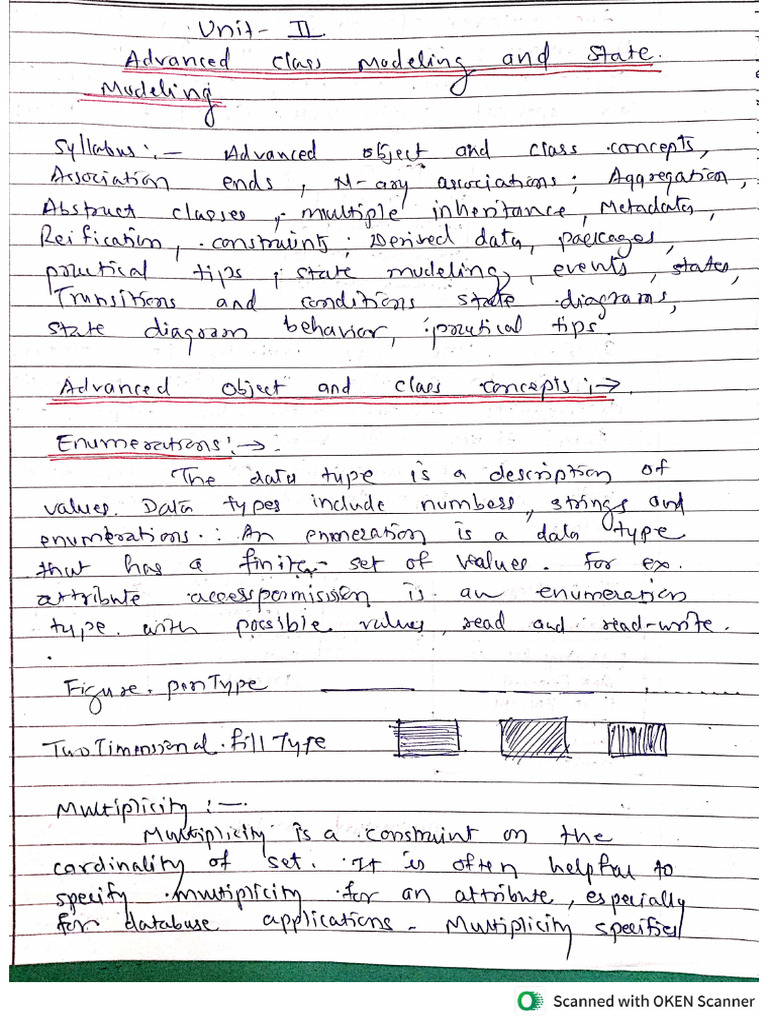 Unit- II
Advanced class Modeling and State.
Modeling
Syllabus:- Advanced object and class concepts,
Association ends, N-ary associations; Aggregation,
Abstract classes, multiple inheritance, Metadata,
Reification, constraints; Derived data, packages,
practical tips; state modeling, events, states,
Transitions and conditions state diagrams,
state diagram behavior, practical tips.
Advanced object and class concepts:→.
Enumerations:→:
The data type is a description of
values. Data types include numbers, strings and
enumerations. : An enumeration is a data type
that has a finite set of values. For ex.
attribute accesspermission is an enumeration
type. with possible values, read and read-write.
Figure. penType
TwoDimensional.fillType
Multiplicity:-
Multiplicity is a constraint on the
cardinality of set. It is often helpful to
specify multiplicity for an attribute, especially
for database applications. Multiplicity specifies
Scanned with OKEN Scanner